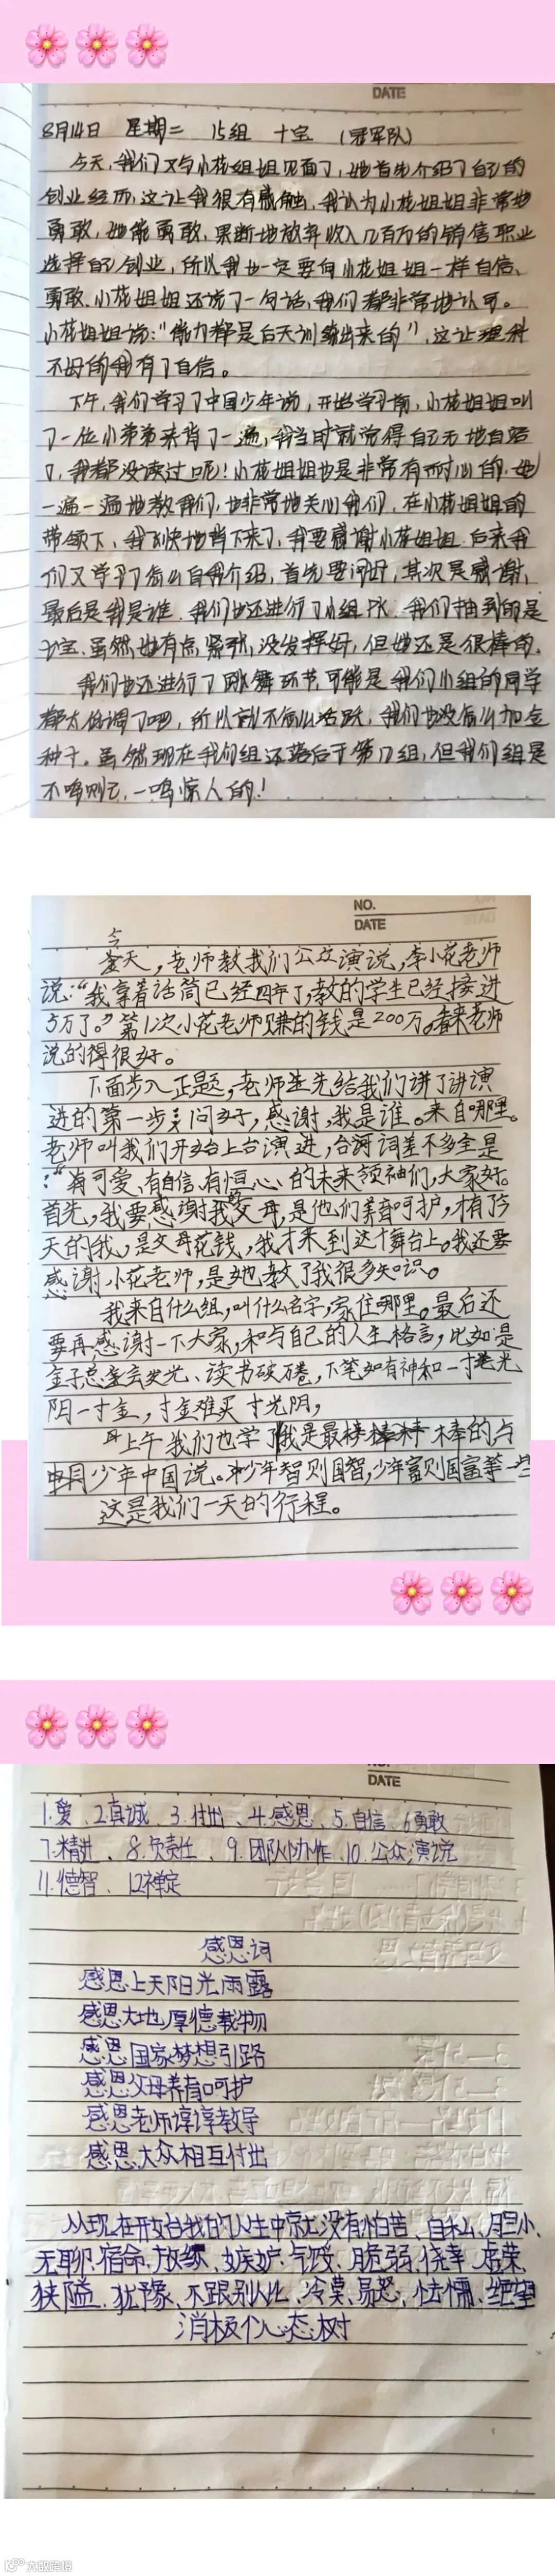 DATE
8月14日 星期二 15组 十宝 (冠军队)
今天,我们又与小花姐姐见面了,她首先介绍了自己的
创业经历,这让我很有感触,我认为小花姐姐非常地
勇敢,她能勇敢,果断地放弃收入几百万的销售职业
选择自己创业,所以我也一定要向小花姐姐一样自信、
勇敢.小花姐姐还说了一句话,我们都非常地认可。
小花姐姐说:"能力都是后天训练出来的",这让理科
不好的我有了自信。
下午,我们学习了中国少年说,开始学习前,小花姐姐叫
了一位小弟弟来背了一遍,我当时就觉得自己无地自容
了,我都没读过呢!小花姐姐也是非常有耐心的,她
一遍一遍地教我们,也非常地关心我们,在小花姐姐的
带领下,我飞快地背下来了,我要感谢小花姐姐.后来我
们又学习了怎么自我介绍,首先要问好,其次是感谢,
最后是我是谁.我们也还进行了小组PK.我们抽到的是
七宝.虽然她有点紧张,没发挥好,但她还是很棒的.
我们也还进行了跳舞环节,可能是我们小组的同学
都太低调了吧,所以就不怎么活跃,我们也没怎么加金
种子。虽然现在我们组还落后于第12组,但我们组是
不鸣则已,一鸣惊人的!
NO.
DATE
今
天,老师教我们公众演说,李小花老师
说:"我拿着话筒已经四年了,教的学生已经接进
5万了。"第1次小花老师赚的钱是200万。看来老师
说的得很好。
下面步入正题,老师先给我们讲了讲演
进的第一步问好,感谢,我是谁。来自哪里。
老师叫我们开始上台演进,台词差不多全是
:"有可爱、有自信、有恒心的未来领袖们,大家好。
首先,我要感谢我的父母,是他们养育呵护,才有了今
天的我,是父母花钱,我才来到这个舞台上。我还要
感谢小花老师,是她教了我很多知识。
我来自什么组,叫什么名字,家住哪里。最后还
要再感谢一下大家,和与自己的人生格言,比如是
金子总会发光、读书破万卷,下笔如有神和一寸光
阴一寸金,寸金难买寸光阴,
上午我们也学了我是最棒的与
中国少年中国说。少年智则国智,少年富则国富等一些
这是我们一天的行程。
DATE
1.爱、2.真诚、3.付出、4.感恩、5.自信、6.勇敢
7.精进、8.负责任、9.团队协作、10.公众演说
11.德智、12.禅定
感恩词
感恩上天阳光雨露
感恩大地厚德载物
感恩国家梦想引路
感恩父母养育呵护
感恩老师谆谆教导
感恩大众相互付出
从现在开始我的人生中就没有怕苦、自私、胆小、
无聊、宿命、放纵、嫉妒、气馁、脆弱、侥幸、虚荣、
狭隘、犹豫、不跟别人比、冷漠、易怒、怯懦、绝望
消极心态树
大数跨境